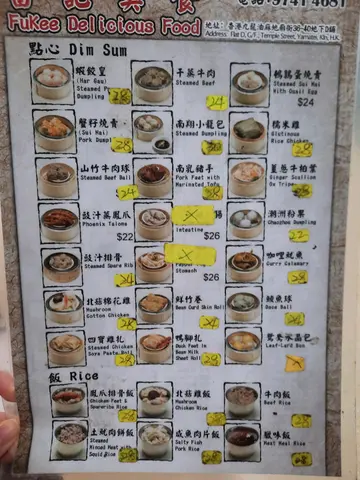 記美食
電話: 9741 4681
FuKee Delicious Food
地址: 香港九龍油麻地廟街36-40地下D舖
Address: Flat D, G/F, Temple Street, Yamatei, Kln, H.K.
點心 Dim Sum
蝦餃皇
(Har Gau)
Steamed
Dumpling
28
干蒸牛肉
Steamed Beef
24
鵪鶉蛋燒賣
Steamed Sui Mai
With Quail Egg
$24
蟹籽燒賣
(Sui Mai)
Pork Dumpling
28
南翔小籠包
Steamed Dumpling
28
糯米雞
Glutinous
Rice Chicken
28
山竹牛肉球
Steamed Beef Ball
24
南乳豬手
Pork Feet with
Marinated Tofu
28
薑葱牛柏葉
Ginger Scallion
Ox Tripe
28
豉汁蒸鳳爪
Phoenix Talons
$22
X
腸
Intestine
$26
潮洲粉果
Chaozhou Dumpling
22
豉汁排骨
Steamed Spare Rib
24
X
Stomach
$26
咖哩魷魚
Curry Calamary
28
北菇棉花雞
Mushroom
Cotton Chicken
28
鮮竹卷
Bean Curd Skin Roll
24
鯪魚球
Dace Ball
28
四寶雞扎
Steamed Chicken
Soya Paste Roll
28
鴨腳扎
Duck Feet in
Bean Milk
Sheet Roll
28
鴛鴦水晶包
Leaf-Lard Bun
X
飯 Rice
鳳爪排骨飯
Chicken Feet &
Sparerite Rice
28
北菇雞飯
Mushroom
Chicken Rice
28
牛肉飯
Beef Rice
28
土魷肉餅飯
Steamed
Minced Meat with
Squid Rice
28
咸魚肉片飯
Salty Fish
Pork Rice
28
臘味飯
28